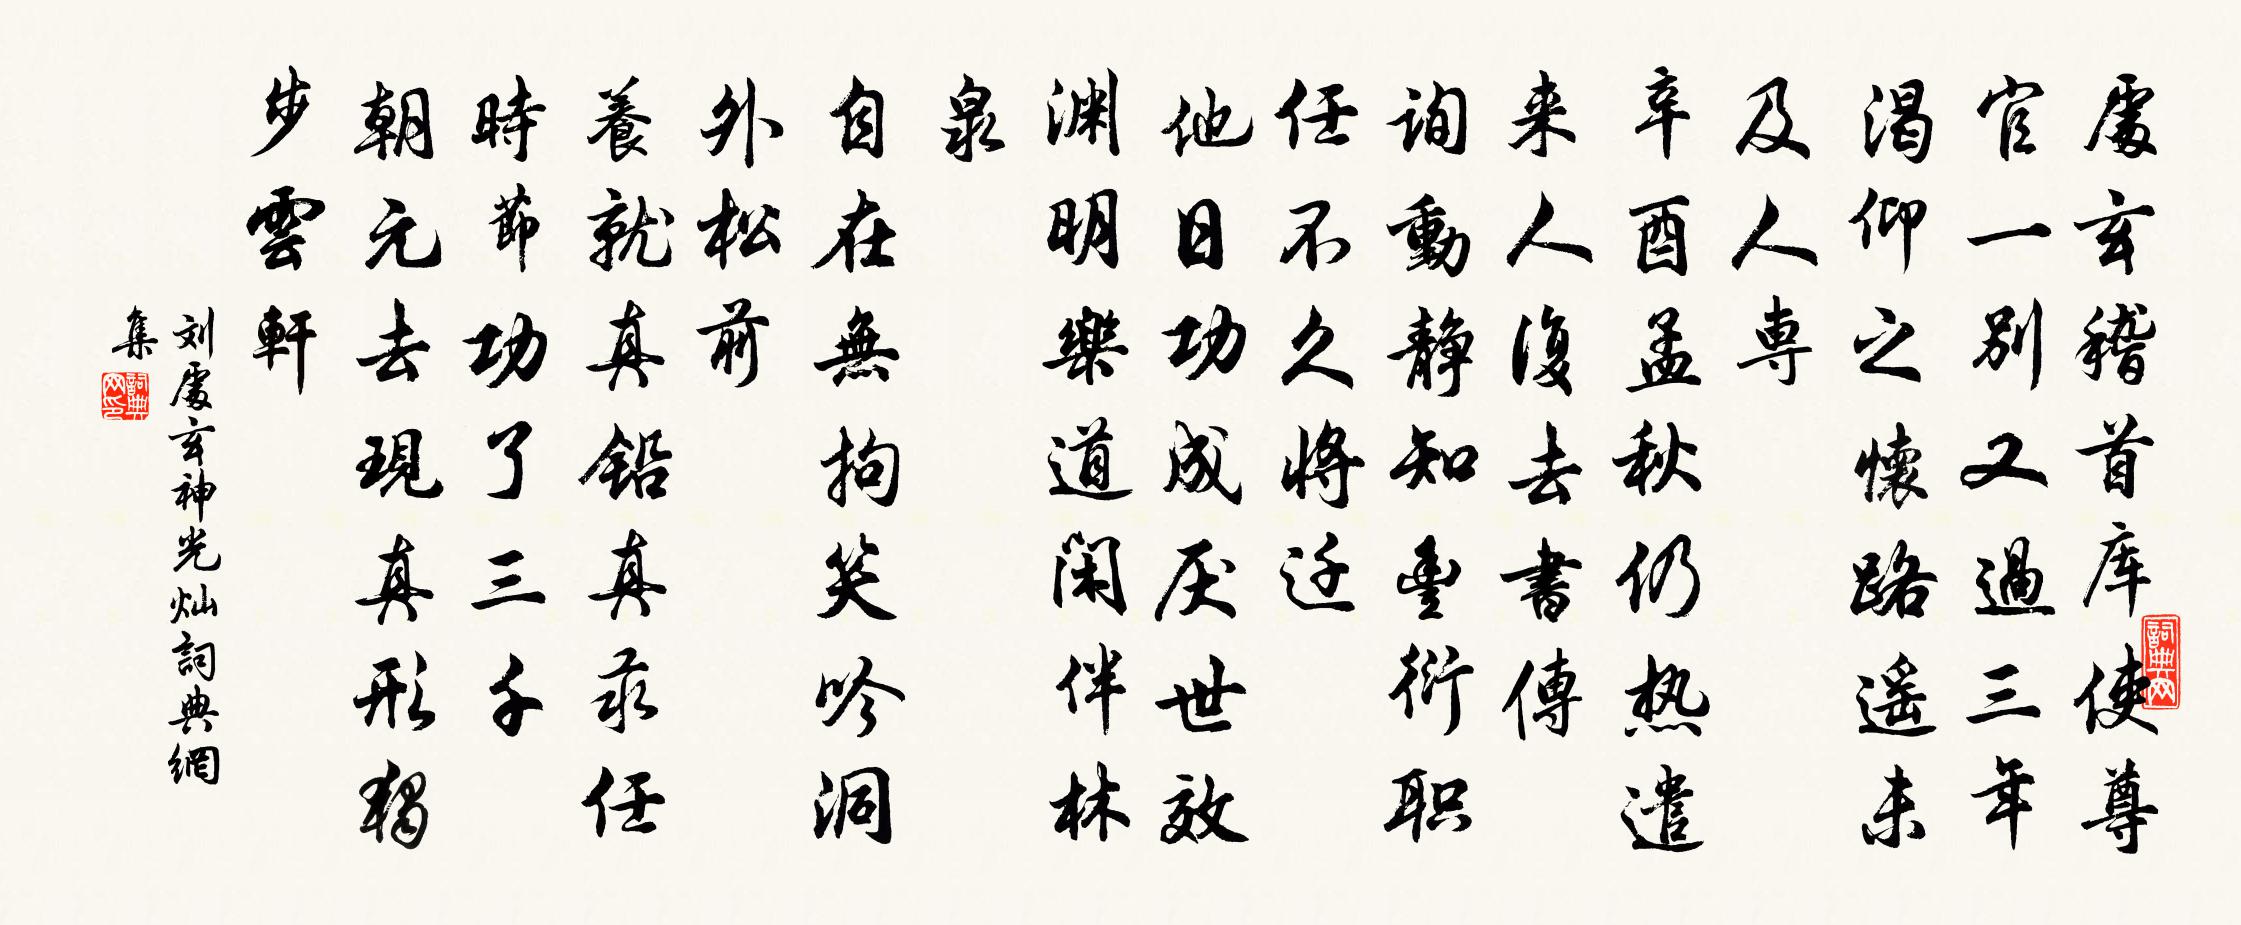 處玄稽首库使尊
官一别又過三年
渴仰之懷路遥未
及人専
辛酉孟秋仍热遣
来人復去書傳
詢動静知豊衍职
任不久將迁
他日功成厌世效
渊明樂道閑伴林
泉
自在無拘笑吟洞
外松前
養就真鉛真汞任
時節功了三千
朝元去現真形獨
步雲軒
刘處玄神光灿詞典網
集
詞典网
詞典网印